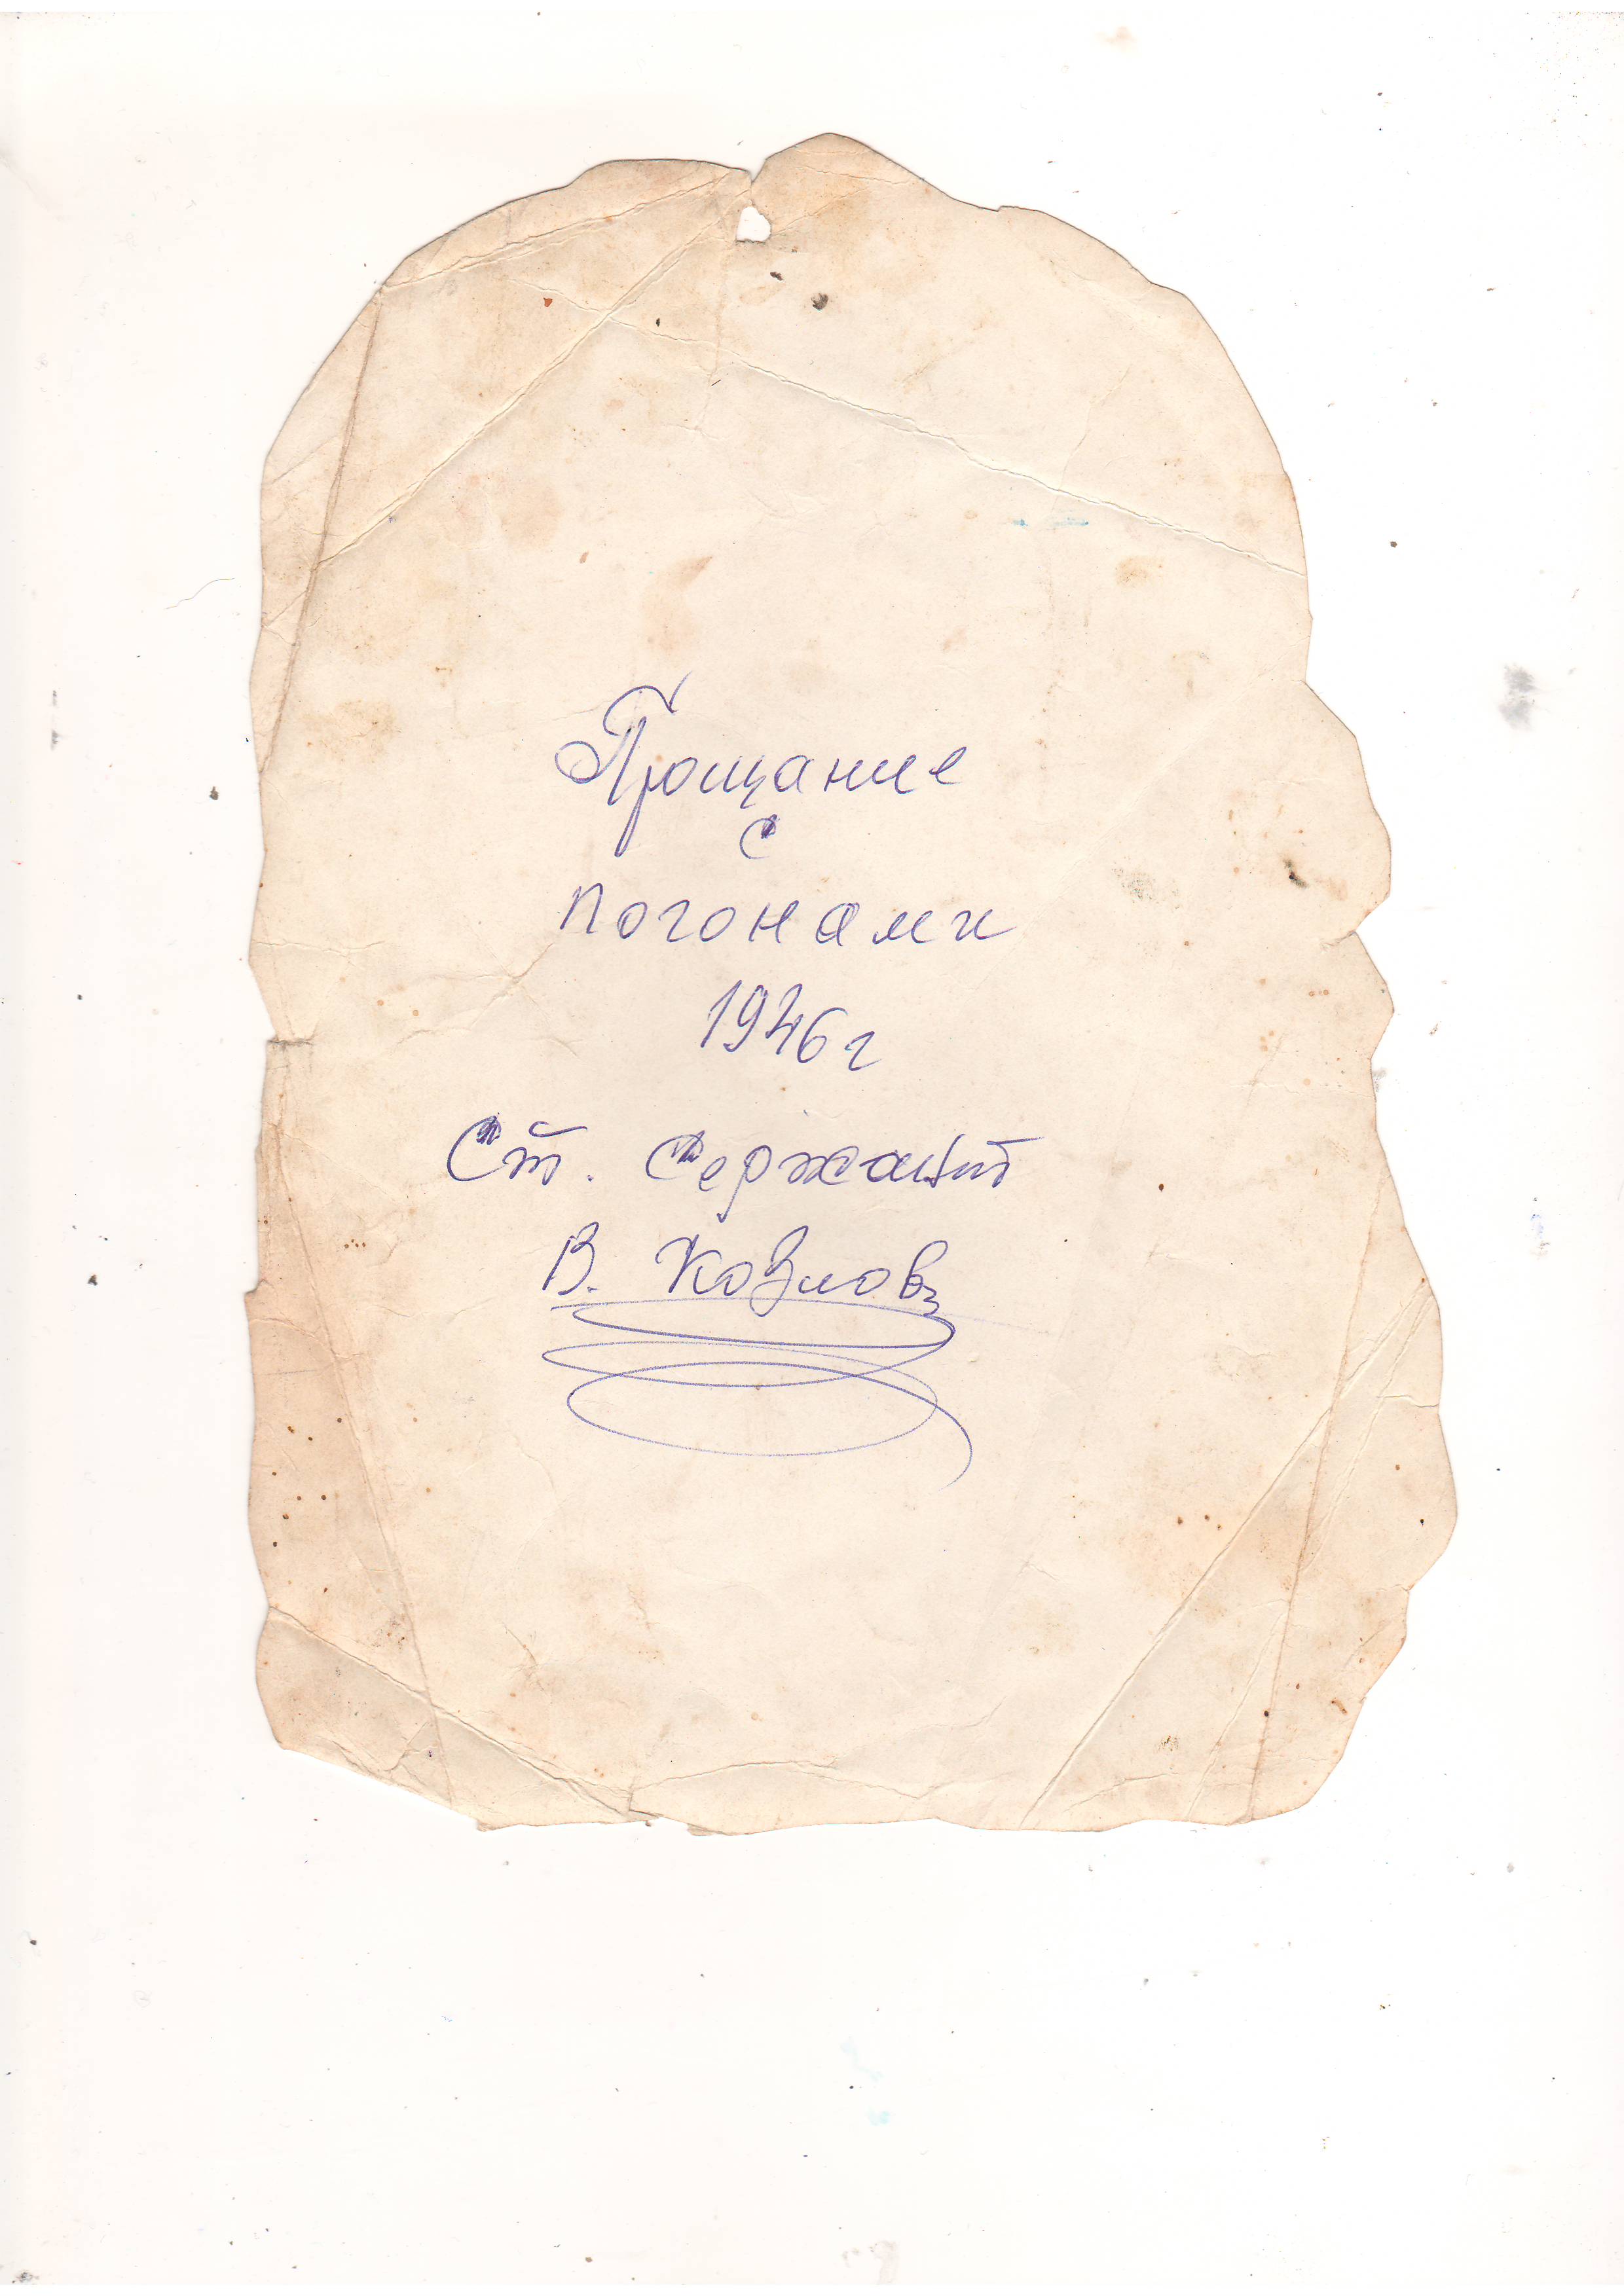 Прощание
с
погонами
1946 г
Ст. Сержант
В. Козлов